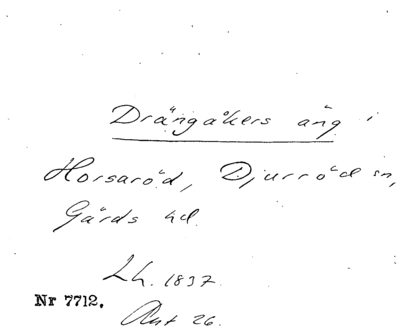 Drängåkers äng i
Horsaröd, Djurröd sn,
Gärds hd.
Lh. 1837.
Nr 7712.
Akt 26.